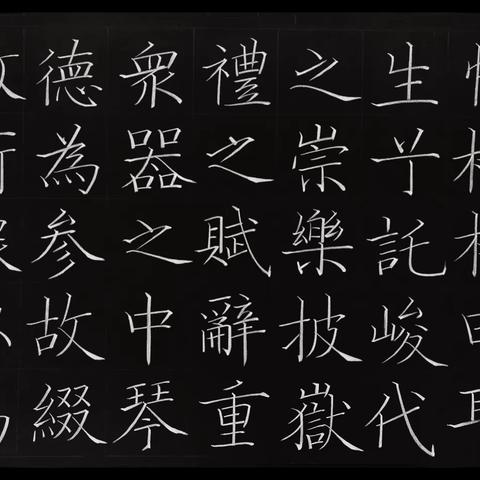 生兮託峻代
之崇樂披嶽
禮之賦辭重
衆器之中琴
德為参故綴